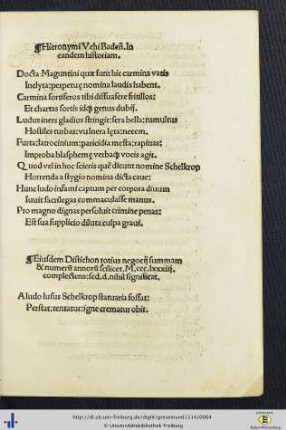 ¶Hieronymi Vehi Badeñ. In
eandem historiam.
Docta Maguntini quæ sunt hic carmina vatis
Inclyta: perpetuę nomina laudis habent.
Carmina sortiferos tibi dissuasere fritillos:
Et chartas sortis idq; genus dubij.
Ludus iners gladios stringit: fera bella: tumultus
Hostiles turbas: vulnera lęta: necem.
Furta: latrocinium: paricidia mesta: rapinas:
Improba blasphemę verbaq; vocis agit.
Quod vel in hoc scieris quē dicunt nomine Schelkrop
Horrenda a stygio nomina dicta caue:
Hunc ludo infami captum per corpora diuum
Iuuit sacrilegas commaculasse manus.
Pro magno dignas persoluit crimine penas:
Est sua supplicio diluta culpa graui.
¶Eiusdem Distichon totius negocij summam
& numerū annorū scilicet. M. cccc. lxxxiiij.
complectens: sed. d. nihil significat.
A ludo lusus Schelkrop statuaria fossat:
Perstat: tentatur: igne crematur obit.
http://dl.ub.uni-freiburg.de/diglit/gresemund1514/0064
© Universitätsbibliothek Freiburg